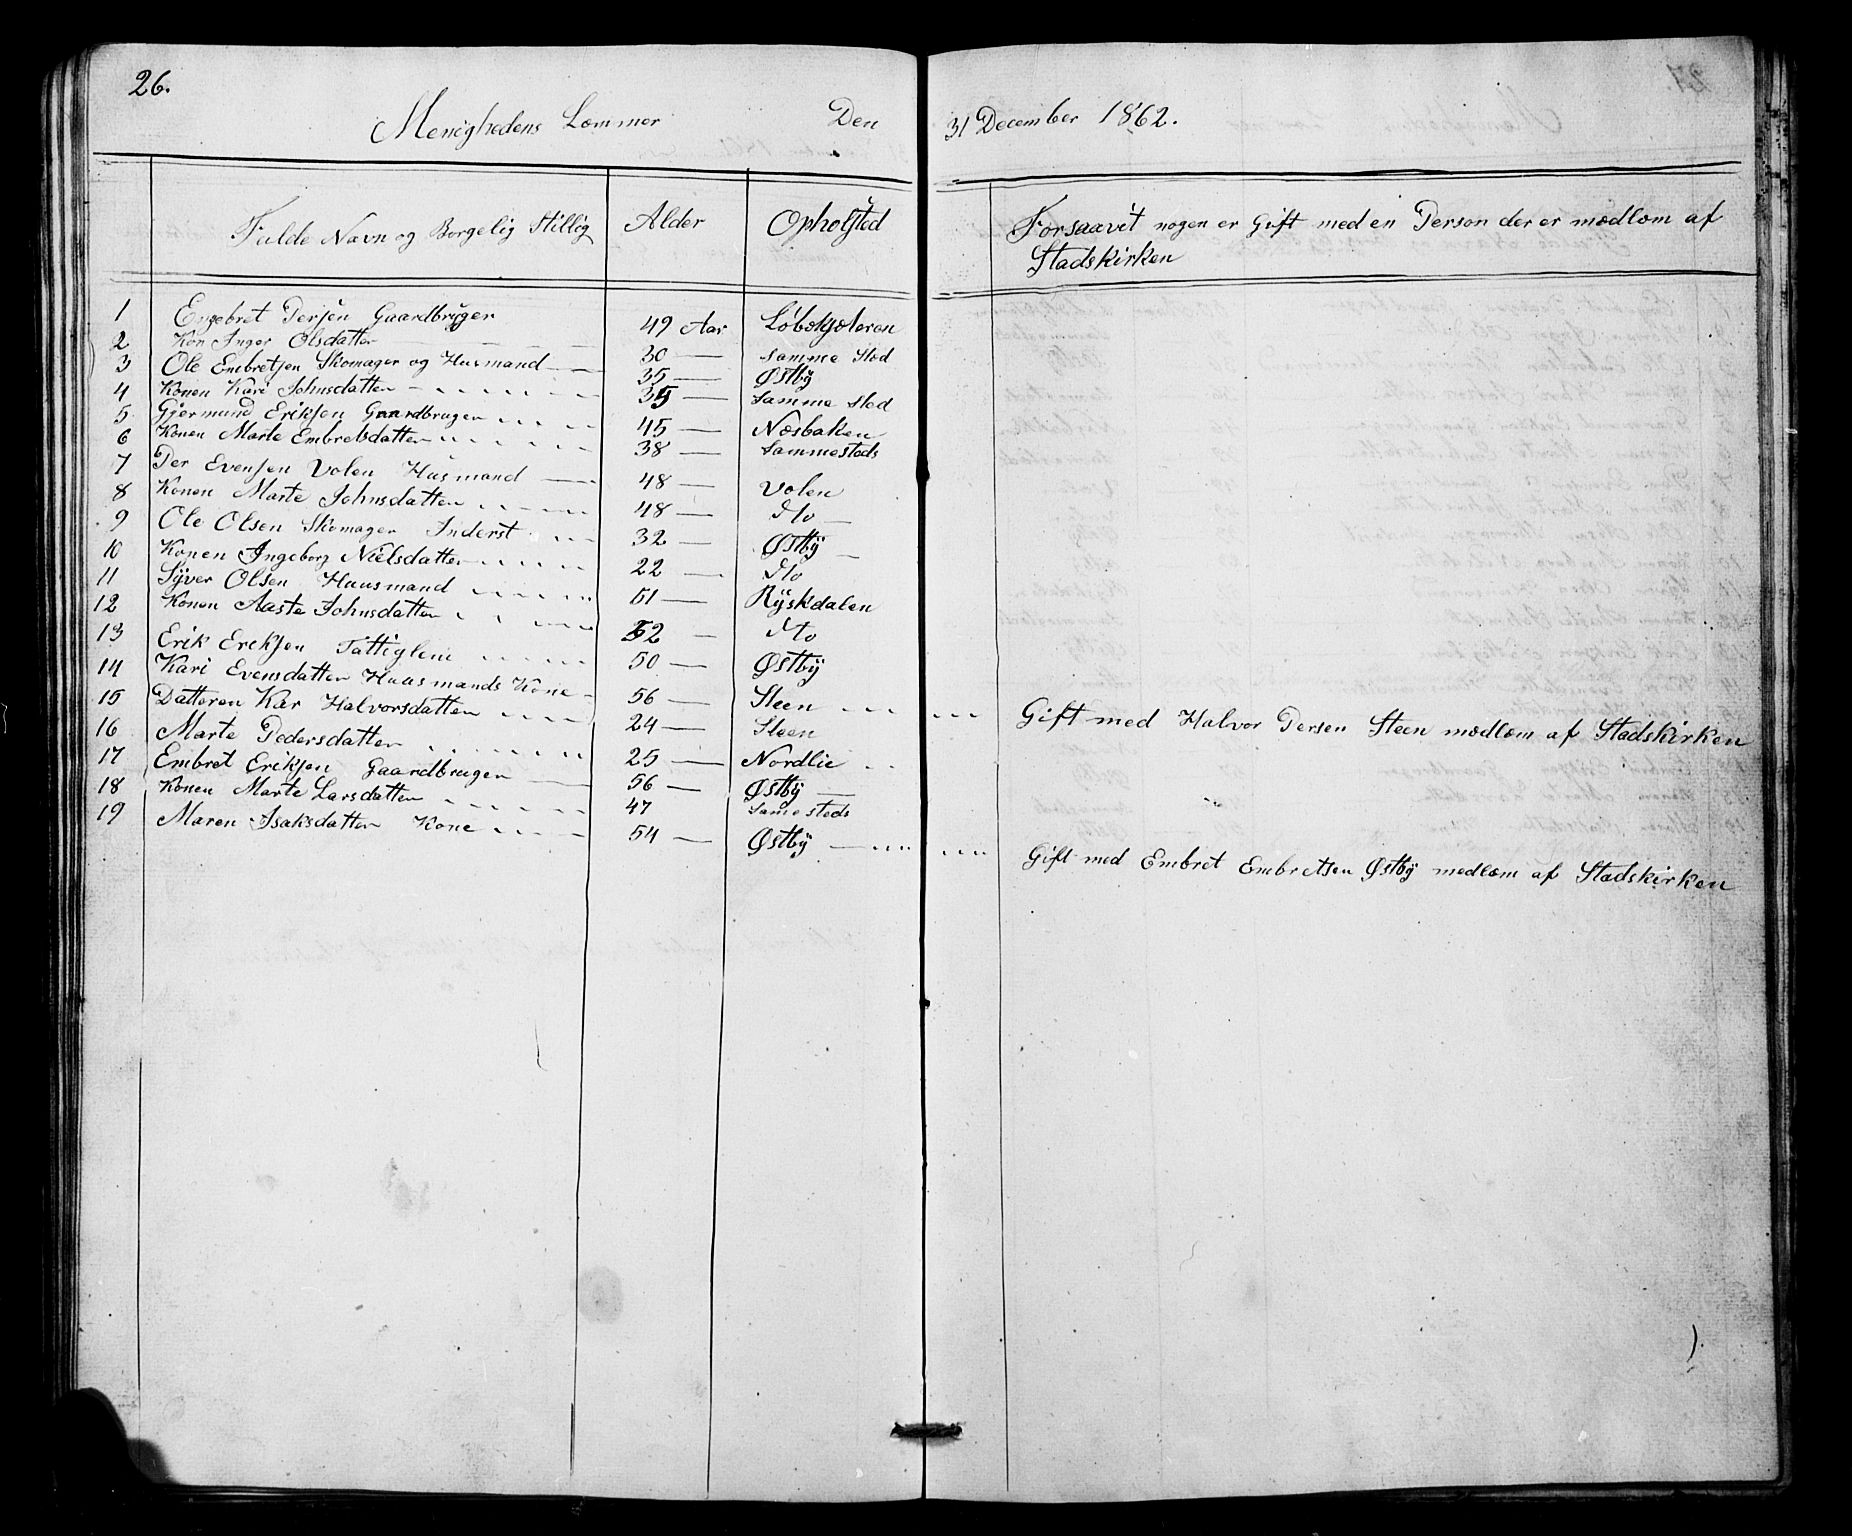 26.
Menighedens Lemmer Den 31 December 1862.
Fulde Navn og Borgelig Stillig Alder Opholsted Forsaavit nogen er Gift med en Person der er medlem af
Stadskirken
1 Engebret Persen Gaardbruger 49 Aar Løbekjøleren
2 Kon Inger Olsdatter 30 — samme Sted
3 Ole Embretsen Skomager og Husmand 35 — Østby
4 Konen Kari Johnsdatter 35 — Samme Sted
5 Gjermund Eriksen Gaardbruger 45 — Næsbaken
6 Konen Marte Embretsdatter 38 — Sammesteds
7 Per Evensen Volen Husmand 48 — Volen
8 Konen Marte Johnsdatter 48 — dto
9 Ole Olsen Skomager Inderst 32 — Østby
10 Konen Ingeborg Nielsdatter 22 — dto
11 Syver Olsen Huusmand 51 — Ryskdalen
12 Konen Aaste Johnsdatter 52 — dto
13 Erik Eriksen Fattiglem 50 — Østby
14 Kari Evensdatter Huusmands Kone 56 — Steen Gift med Halvor Persen Steen medlem af Stadskirken
15 Datteren Kar Halvorsdatter 24 — Steen
16 Marte Pedersdatter 25 — Nordlie
17 Embret Eriksen Gaardbruger 56 — Østby
18 Konen Marte Larsdatter 47 Samesteds
19 Maren Isaksdatter Kone 54 — Østby Gift med Embret Embretsen Østby medlem af Stadskirken